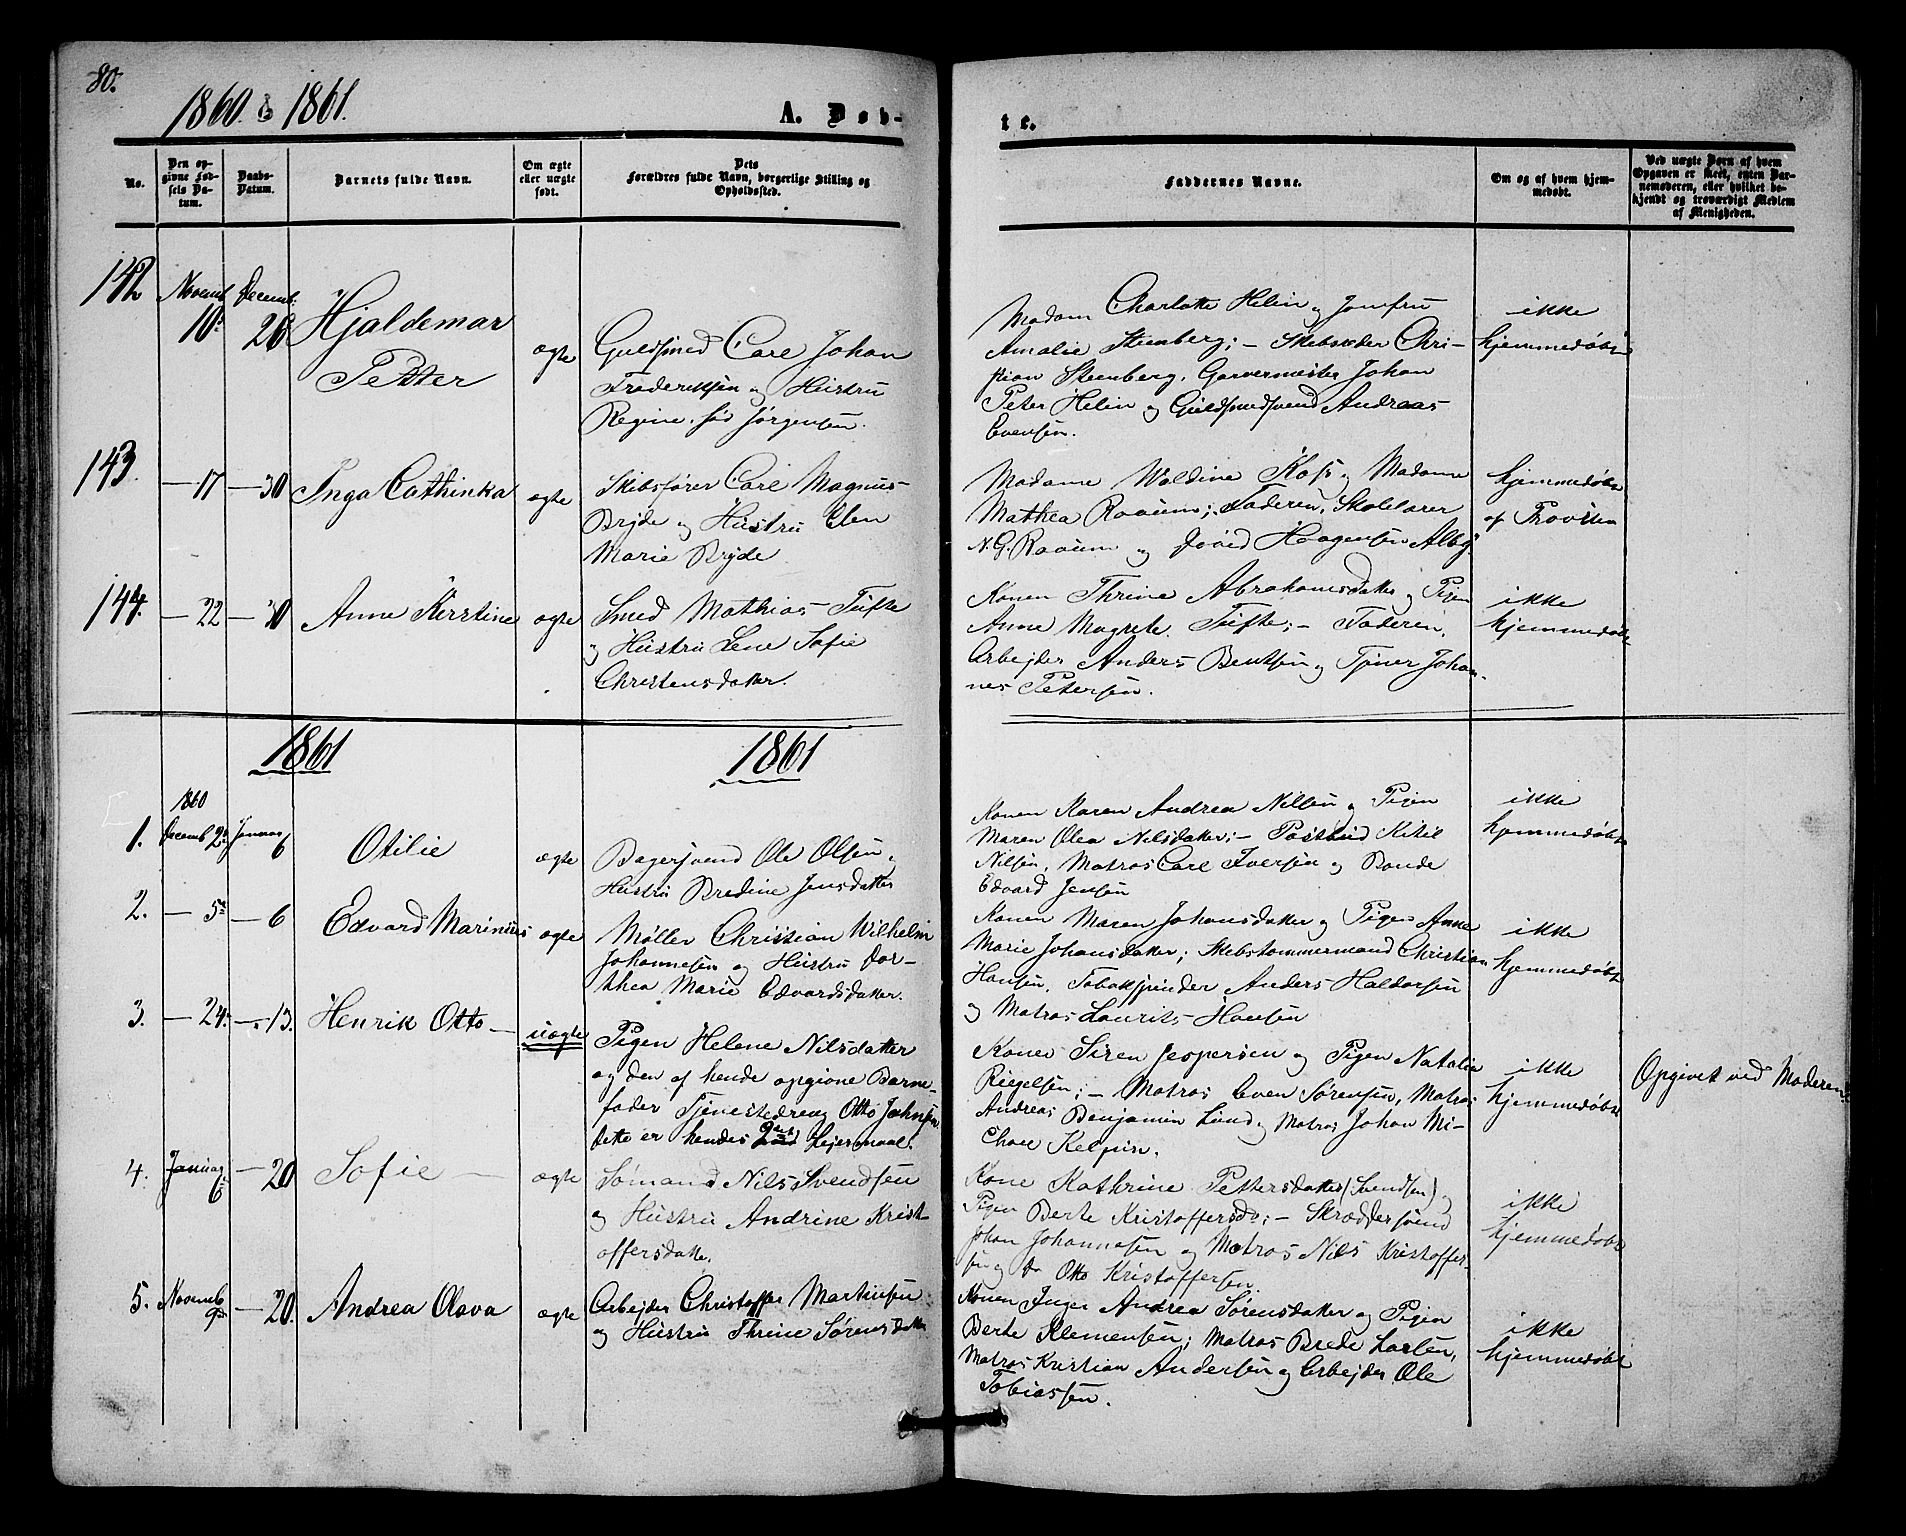 80.
1860. & 1861.
A. Døb-
te.
No.
Den op-
givne Fød-
sels Da-
tum.
Daabs-
Datum.
Barnets fulde Navn.
Om ægte
eller uægte
født.
Dets
Forældres fulde Navn, borgerlige Stilling og
Opholdssted.
Faddernes Navne.
Om og af hvem hjem-
medøbt.
Ved uægte Børn af hvem
Opgaven er skeet, enten Bar-
nemoderen, eller hvilket be-
kjendt og troværdigt Medlem
af Menigheden.
142
Novemb.
10.
Decemb.
26
Hjaldemar
Petter
ægte
Guldsmed Carl Johan
Frederiksen og Hustru
Regine. fød Jørgensen.
Madam Charlotte Helin og Jomfru
Amalie Steenberg; – Skibsreder Chri-
stian Steenberg, Garvermester Johan
Peter Helin og Guldsmedsvend Andreas
Evensen.
ikke
hjemmedøbt
143.
– 17
– 30
Inga Cathinka
ægte
Skibsfører Carl Magnus
Bryde og Hustru Elen
Marie Bryde
Madame Waldine Koss og Madame
Mathea Raaum; Faderen, Skolelærer
N.G. Raaum og David Haagensen Alby
hjemmedøbt
af
144.
– 22
– 30
Anne Kirstine
ægte
Smed Mathias Tufte
og Hustru Lene Sofie
Christensdatter.
Konen Thrine Abrahamsdatter og Pigen
Anne Magrete Tufte; – Faderen,
Arbejder Anders Bentsen og Tjener Johan-
nes Petersen.
ikke
hjemmedøbt
1861
1861
1.
1860
Decemb 2
Januar 6
Otilie
ægte
Bagersvend Ole Olsen og
Hustru Bredine Jensdatter
Konen Karen Andrea Nilsen og Pigen
Maren Olea Nilsdatter; – Postbud Kitil
Nilsen, Matros Carl Iversen og Bonde
Edvard Jensen
ikke
hjemmedøbt
2.
– 5
– 6
Edvard Marinius
ægte
Møller Christian Wilhelm
Johannesen og Hustru Dor-
thea Marie Edvardsdatter.
Konen Maren Johansdatter og Pigen Anne
Marie Johansdatter; Skibstømmermand Christian
Hansen, Tobakspinder Anders Haldorsen
og Matros Laurits Hansen
ikke
hjemmedøbt
3.
– 24
– 13.
Henrik Otto –
uægte
Pigen Helene Nilsdatter
og den af hende opgivne Barne-
fader Tjenestedreng Otto Johnsen
dette er hendes 2det Lejersmaal.
Konen Siren Jespersen og Pigen Natalie
Riegelsen; – Matros Even Sørensen, Matros
Andreas Benjamin Lund og Matros Johan Mi-
chael
ikke
hjemmedøbt
Opgivet ved Moderen
4.
Januar
6
– 20
Sofie –
ægte
Sømand Nils Svendsen
og Hustru Andrine Krist-
offersdatter.
Kone Kathrine Pettersdatter (Svendsen) og
Pigen Berte Kristoffersdr; – Skræddersvend
Johan Johannesen og Matros Nils Kristoffer-
sen og Do Otto Kristoffersen.
ikke
hjemmedøbt
5.
Novemb
9
– 20.
Andrea Olava
ægte
Arbejder Christoffer Martinsen
og Hustru Thrine Sørensdatter
Konen Inger Andrea Sørensdatter og Pigen
Berte Klemensen; Matros Brede Larsen,
Matros Kristian Andersen og Arbejder Ole
Tobiassen.
ikke
hjemmedøbt